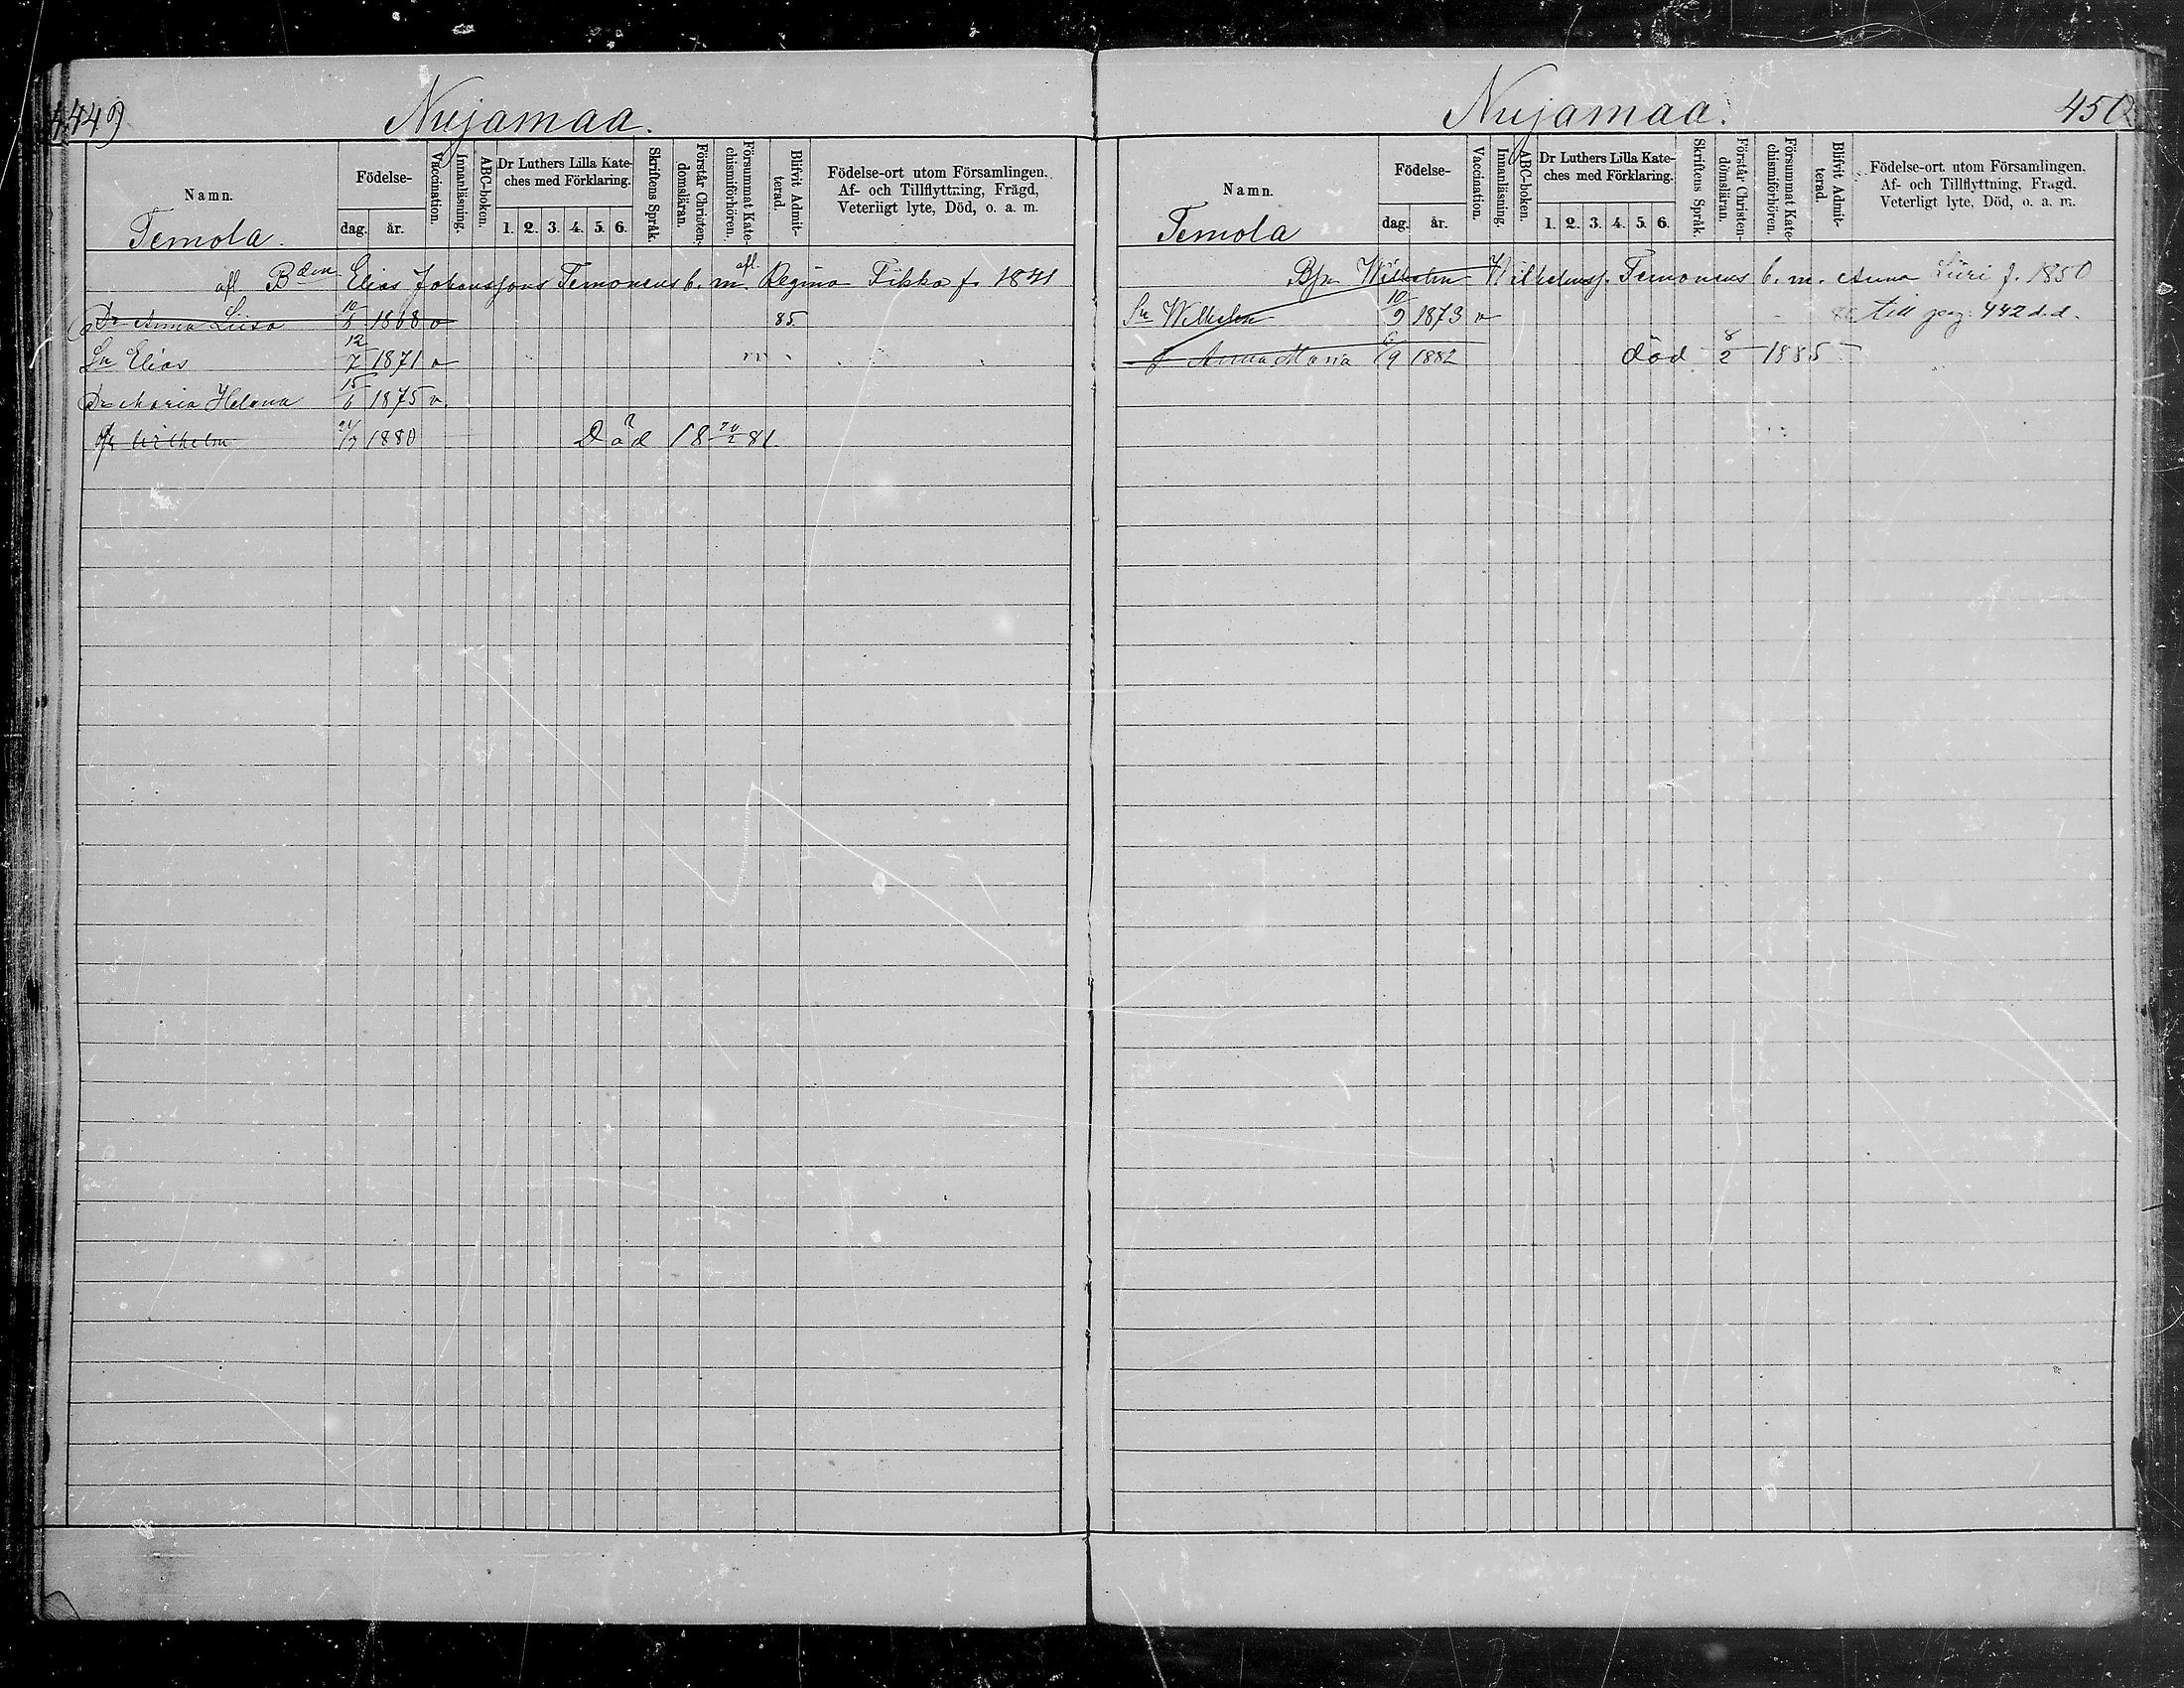 449
Nujamaa.
Namn.
Födelse-
dag.
år.
Vaccination.
Innanläsning.
ABC-boken.
Dr Luthers Lilla Kate-
ches med Förklaring.
1. 2. 3. 4. 5. 6.
Skriftens Språk.
Förstår Christen-
domsläran.
Försummat Kate-
chismiförhören.
Blifvit Admit-
terad.
Födelse-ort utom Församlingen.
Af- och Tillflyttning, Frägd,
Veterligt lyte, Död, o. a. m.
Temola.
afl. Bden Elias Johanssons Temonens b. m. afl. Regina Tikka f. 1841
Dr Anna Liisa 10/8 1868 v 85
Sn Elias 12/7 1871 v
Dr Maria Helena 15/6 1875 v.
Wilhelm 24/7 1880 Död 18 20/2 81
Nujamaa.
450
Namn.
Födelse-
dag.
år.
Vaccination.
Innanläsning.
ABC-boken.
Dr Luthers Lilla Kate-
ches med Förklaring.
1. 2. 3. 4. 5. 6.
Skriftens Språk.
Förstår Christen-
domsläran.
Försummat Kate-
chismiförhören.
Blifvit Admit-
terad.
Födelse-ort utom Församlingen.
Af- och Tillflyttning, Fragd.
Veterligt lyte, Död, o. a. m.
Temola
Wilhelm Wilhelmsf. Temonens b. m. Anna Liiri f. 1850
Sn Wilhelm 10/9 1873 v till pag. 442 d.d.
Anna Maria 6/9 1882 död 8/2 1885